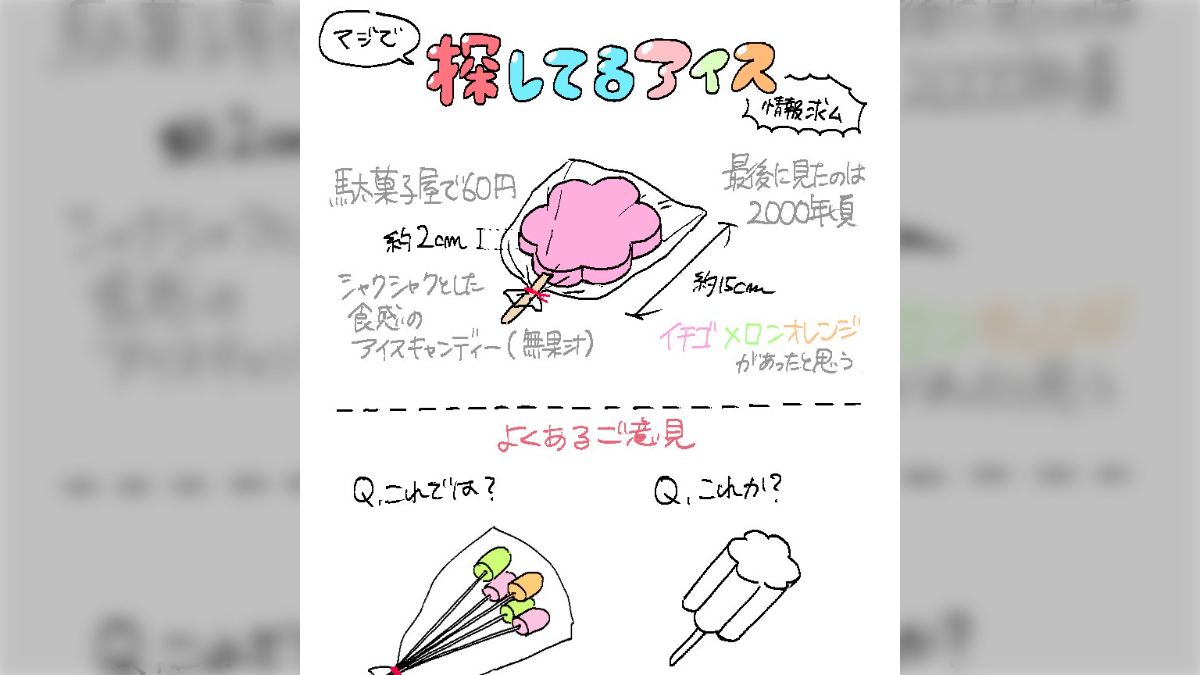 マジで
探してるアイス
情報求ム
駄菓子屋で60円
最後に見たのは
2000年頃
約2cm
約15cm
シャクシャクとした
食感の
アイスキャンディー(無果汁)
イチゴメロンオレンジ
があったと思う
よくあるご意見
Q,これでは?
Q,これか?